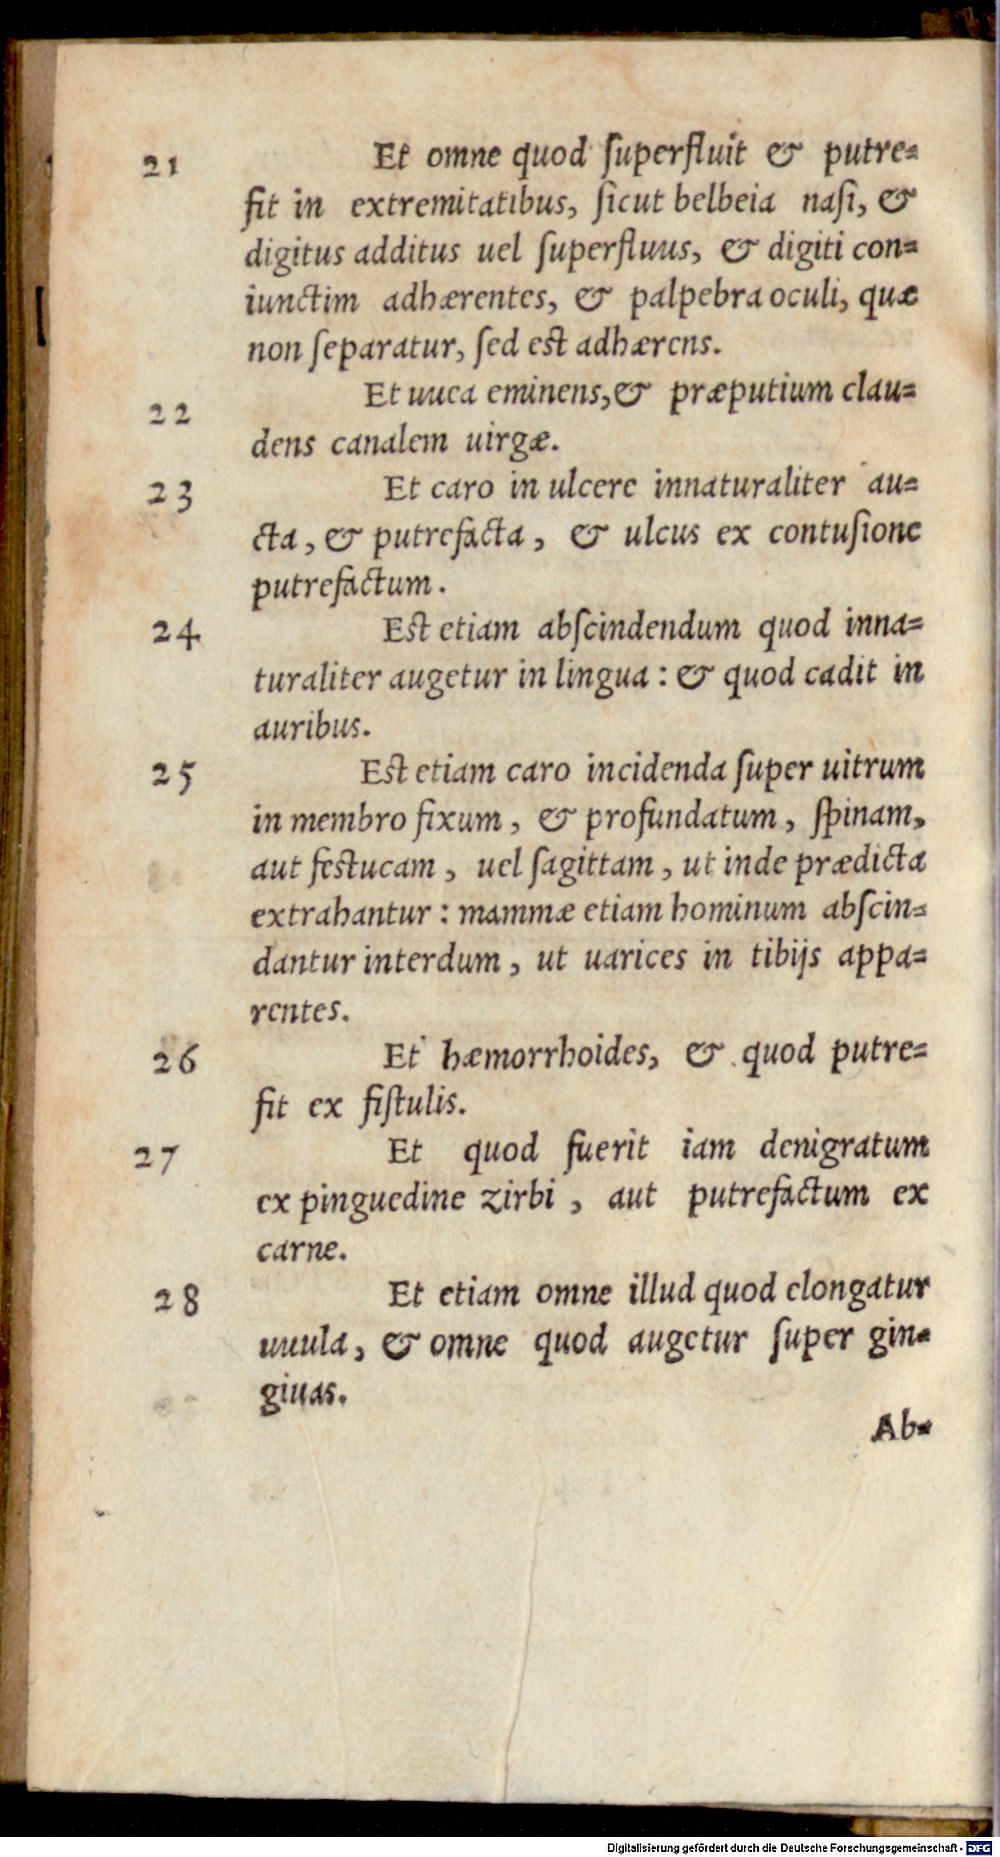 21 Et omne quod ſuperfluit & putre=
fit in extremitatibus, ſicut belbeia naſi, &
digitus additus uel ſuperfluus, & digiti con=
iunctim adhærentes, & palpebra oculi, quæ
non ſeparatur, ſed est adhærens.
22 Et uuca eminens, & præputium clau=
dens canalem uirgæ.
23 Et caro in ulcere innaturaliter au=
cta, & putrefacta, & ulcus ex contuſione
putrefactum.
24 Est etiam abſcindendum quod inna=
turaliter augetur in lingua: & quod cadit in
auribus.
25 Est etiam caro incidenda ſuper uitrum
in membro fixum, & profundatum, ſpinam,
aut festucam, uel ſagittam, ut inde prædicta
extrahantur: mammæ etiam hominum abſcin=
dantur interdum, ut uarices in tibijs appa=
rentes.
26 Et hæmorrhoides, & quod putre=
fit ex fiſtulis.
27 Et quod fuerit iam denigratum
ex pinguedine zirbi, aut putrefactum ex
carne.
28 Et etiam omne illud quod elongatur
uuula, & omne quod augetur ſuper gin=
giuas.
Ab=
Digitalisierung gefördert durch die Deutsche Forschungsgemeinschaft - DFG